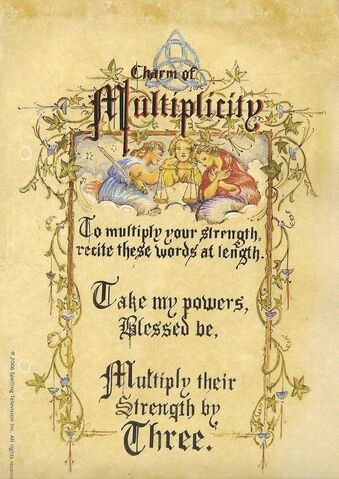 Charm of
Multiplicity
To multiply your strength,
recite these words at length.
Take my powers,
Blessed be,
Multiply their
Strength by
Three.
© 2006 Spelling Television Inc. All rights reserved